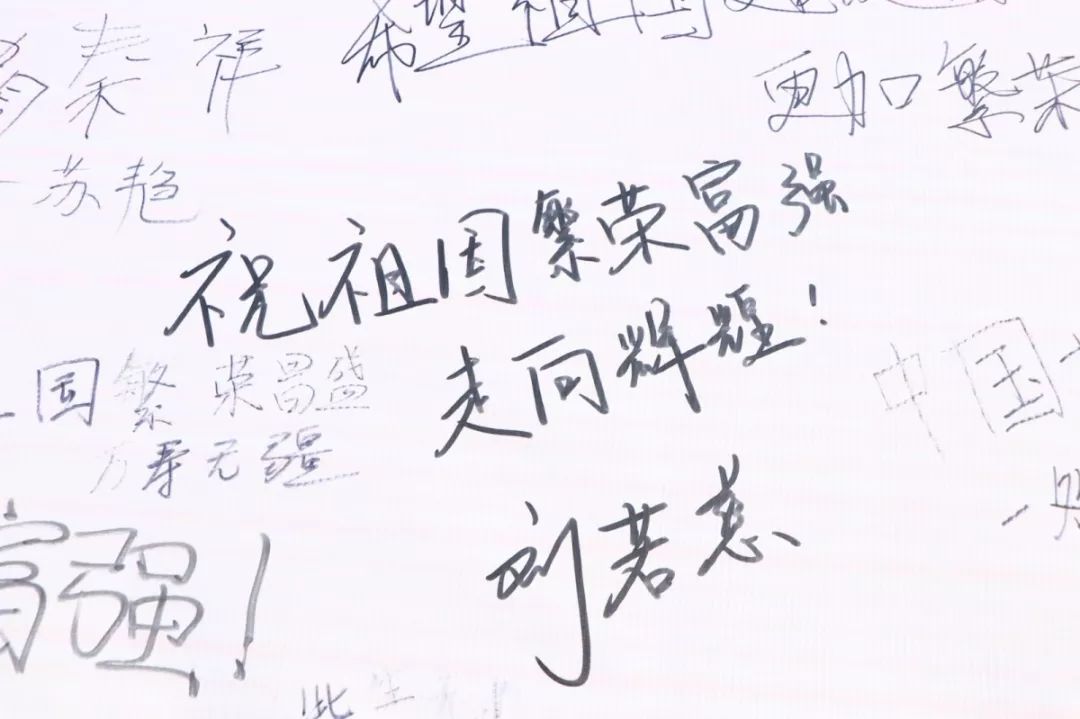 秦祥
希望祖国
更加繁荣
苏艳
祝祖国繁荣富强
走向辉煌!
国繁荣昌盛
万寿无疆
中国
富强!
刘若慈
此生